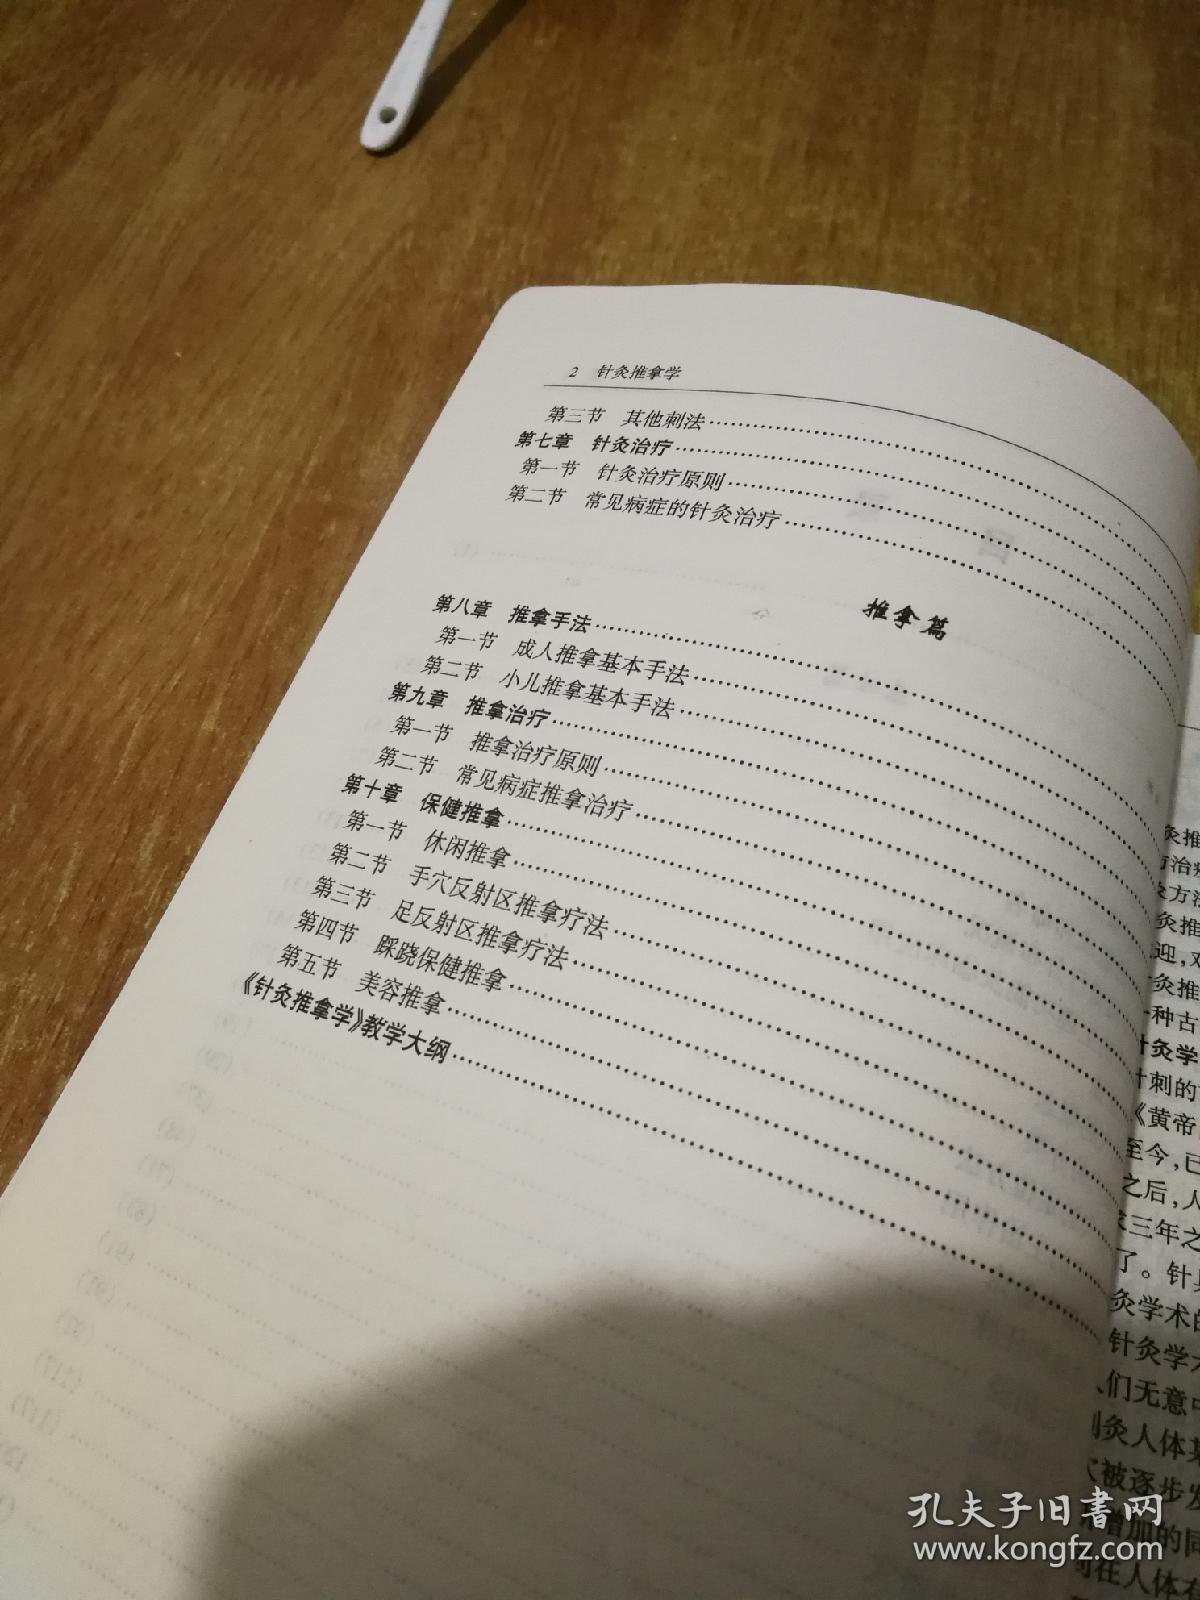 2 针灸推拿学
第三节 其他刺法
第七章 针灸治疗
第一节 针灸治疗原则
第二节 常见病症的针灸治疗
推拿篇
第八章 推拿手法
第一节 成人推拿基本手法
第二节 小儿推拿基本手法
第九章 推拿治疗
第一节 推拿治疗原则
第二节 常见病症推拿治疗
第十章 保健推拿
第一节 休闲推拿
第二节 手穴反射区推拿疗法
第三节 足反射区推拿疗法
第四节 踩跷保健推拿
第五节 美容推拿
《针灸推拿学》教学大纲
灸推
方法
灸推
迎,对
灸推
一种古
针灸学
刺的
《黄帝
至今,已
之后,人
三年之
了。针具
灸学术的
针灸学
们无意中
灸人体某
被逐步发
增加的同
在人体有
孔夫子旧书网
www.kongfz.com